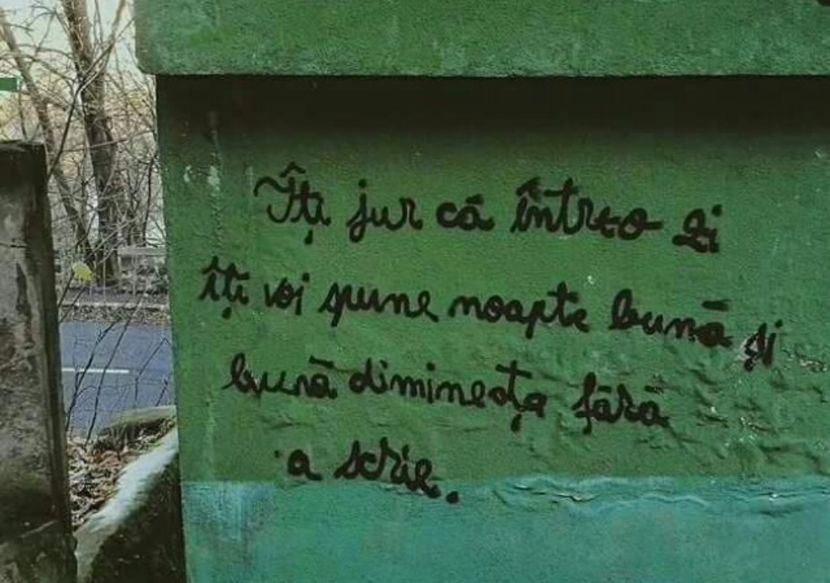 Îți jur că într-o zi
îți voi spune noapte bună și
bună dimineața fără
a scrie.